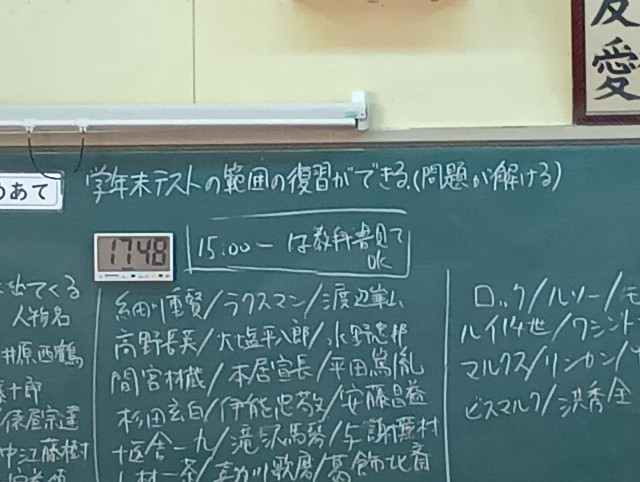 友
愛
学年末テストの範囲の復習ができる.(問題が解ける)
めあて
1748
15:00〜は教科書見て
OK
出てくる
人物名
井原西鶴
十郎
俵屋宗達
中江藤樹
細川重賢/ラクスマン/渡辺崋山
高野長英/大塩平八郎/水野忠邦
間宮林蔵/本居宣長/平田篤胤
杉田玄白/伊能忠敬/安藤昌益
十返舎一九/滝沢馬琴/与謝蕪村
小林一茶/喜多川歌麿/葛飾北斎
ロック/ルソー/
ルイ14世/ワシント
マルクス/リンカン/
ビスマルク/洪秀全